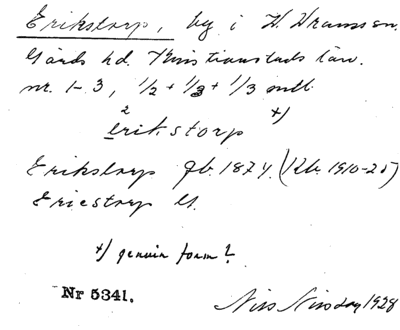 Erikstorp, by i V. Vram sn.
Gärds hd. Kristianstads län.
nr. 1-3, 1/2 + 1/3 + 1/3 mtl.
erikstorp x)
Erikstorp Jb. 1874. (Kb. 1910-25)
Ericstorp
x) genuin form?
Nr 5341.
1928